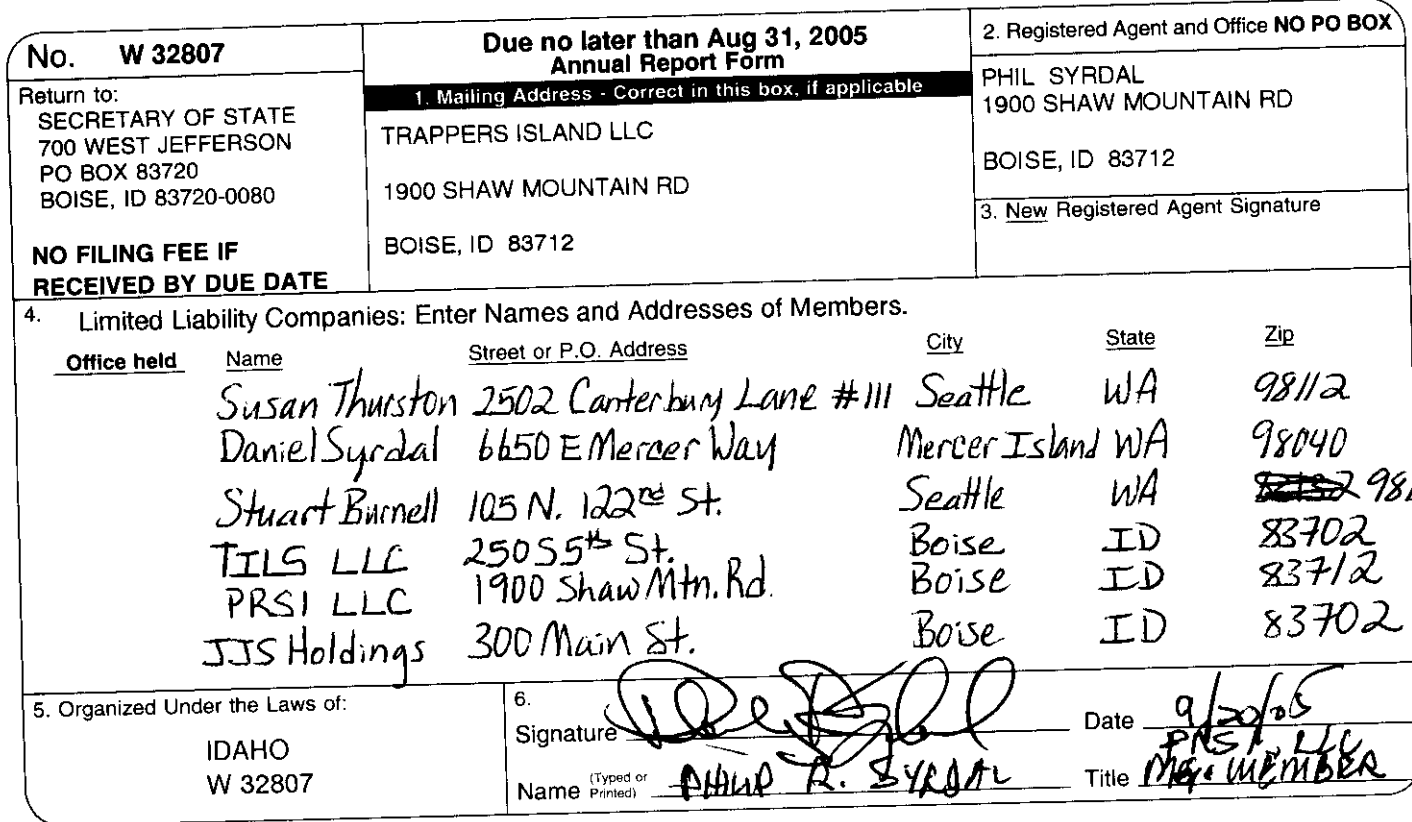 No. W 32807
Return to:
SECRETARY OF STATE
700 WEST JEFFERSON
PO BOX 83720
BOISE, ID 83720-0080
NO FILING FEE IF
RECEIVED BY DUE DATE
Due no later than Aug 31, 2005
Annual Report Form
1. Mailing Address - Correct in this box, if applicable
TRAPPERS ISLAND LLC
1900 SHAW MOUNTAIN RD
BOISE, ID 83712
2. Registered Agent and Office NO PO BOX
PHIL SYRDAL
1900 SHAW MOUNTAIN RD
BOISE, ID 83712
3. New Registered Agent Signature
4. Limited Liability Companies: Enter Names and Addresses of Members.
Office held Name Street or P.O. Address City State Zip
Susan Thurston 2502 Canterbury Lane #111 Seattle WA 98112
Daniel Syrdal 6650 E Mercer Way Mercer Island WA 98040
Stuart Burnell 105 N. 122nd St. Seattle WA
TILS LLC 250 S 5th St. Boise ID 83702
PRSI LLC 1900 Shaw Mtn. Rd. Boise ID 83712
JJS Holdings 300 Main St. Boise ID 83702
5. Organized Under the Laws of:
IDAHO
W 32807
6.
Signature Date 9/20/05
PRSI, LLC
Name (Typed or Printed) PHILIP R. SYRDAL Title MEMBER